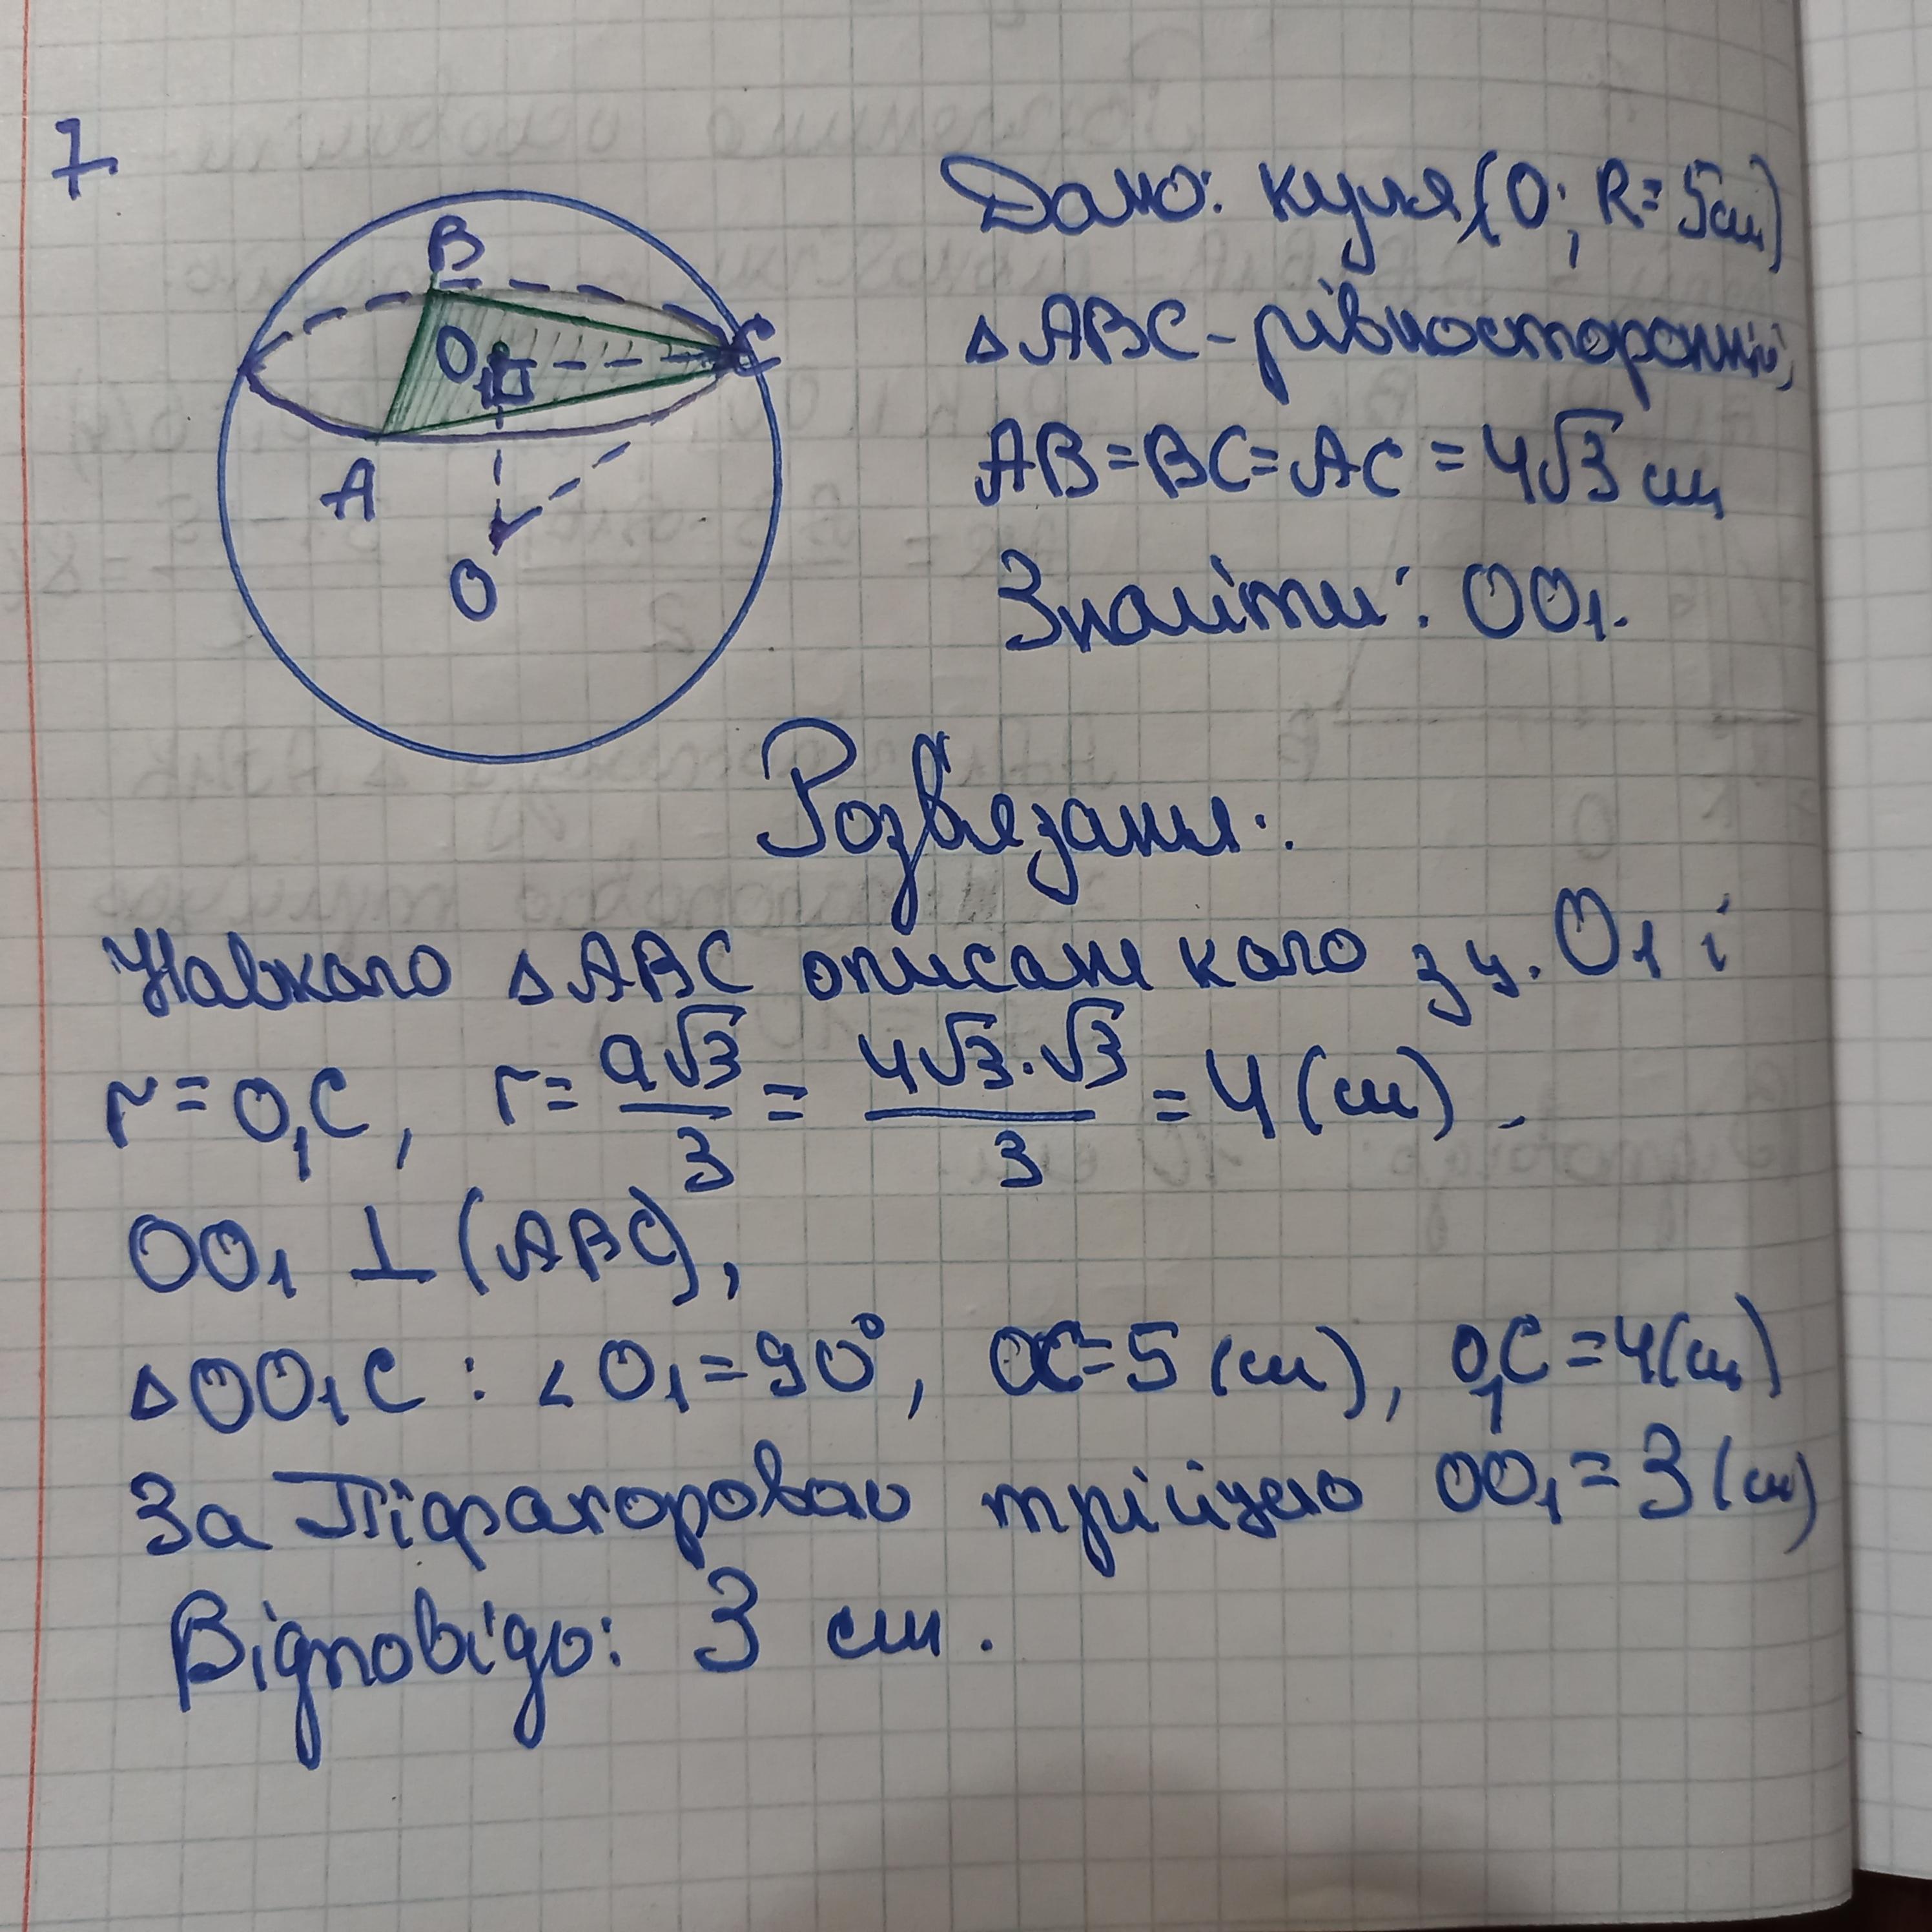 7
Дано: куля (O; R = 5см)
△ABC - рівносторонній,
AB = BC = AC = 4√3 см
Знайти: OO₁.
B
O₁
C
A
O
Розв'язання:
Навколо △ABC описане коло з ц. O₁ і
r = O₁C, r = a√3/3 = 4√3·√3/3 = 4 (см).
OO₁ ⊥ (ABC),
△OO₁C : ∠O₁ = 90°, OC = 5 (см), O₁C = 4 (см)
За Піфагоровою трійкою OO₁ = 3 (см)
Відповідь: 3 см.